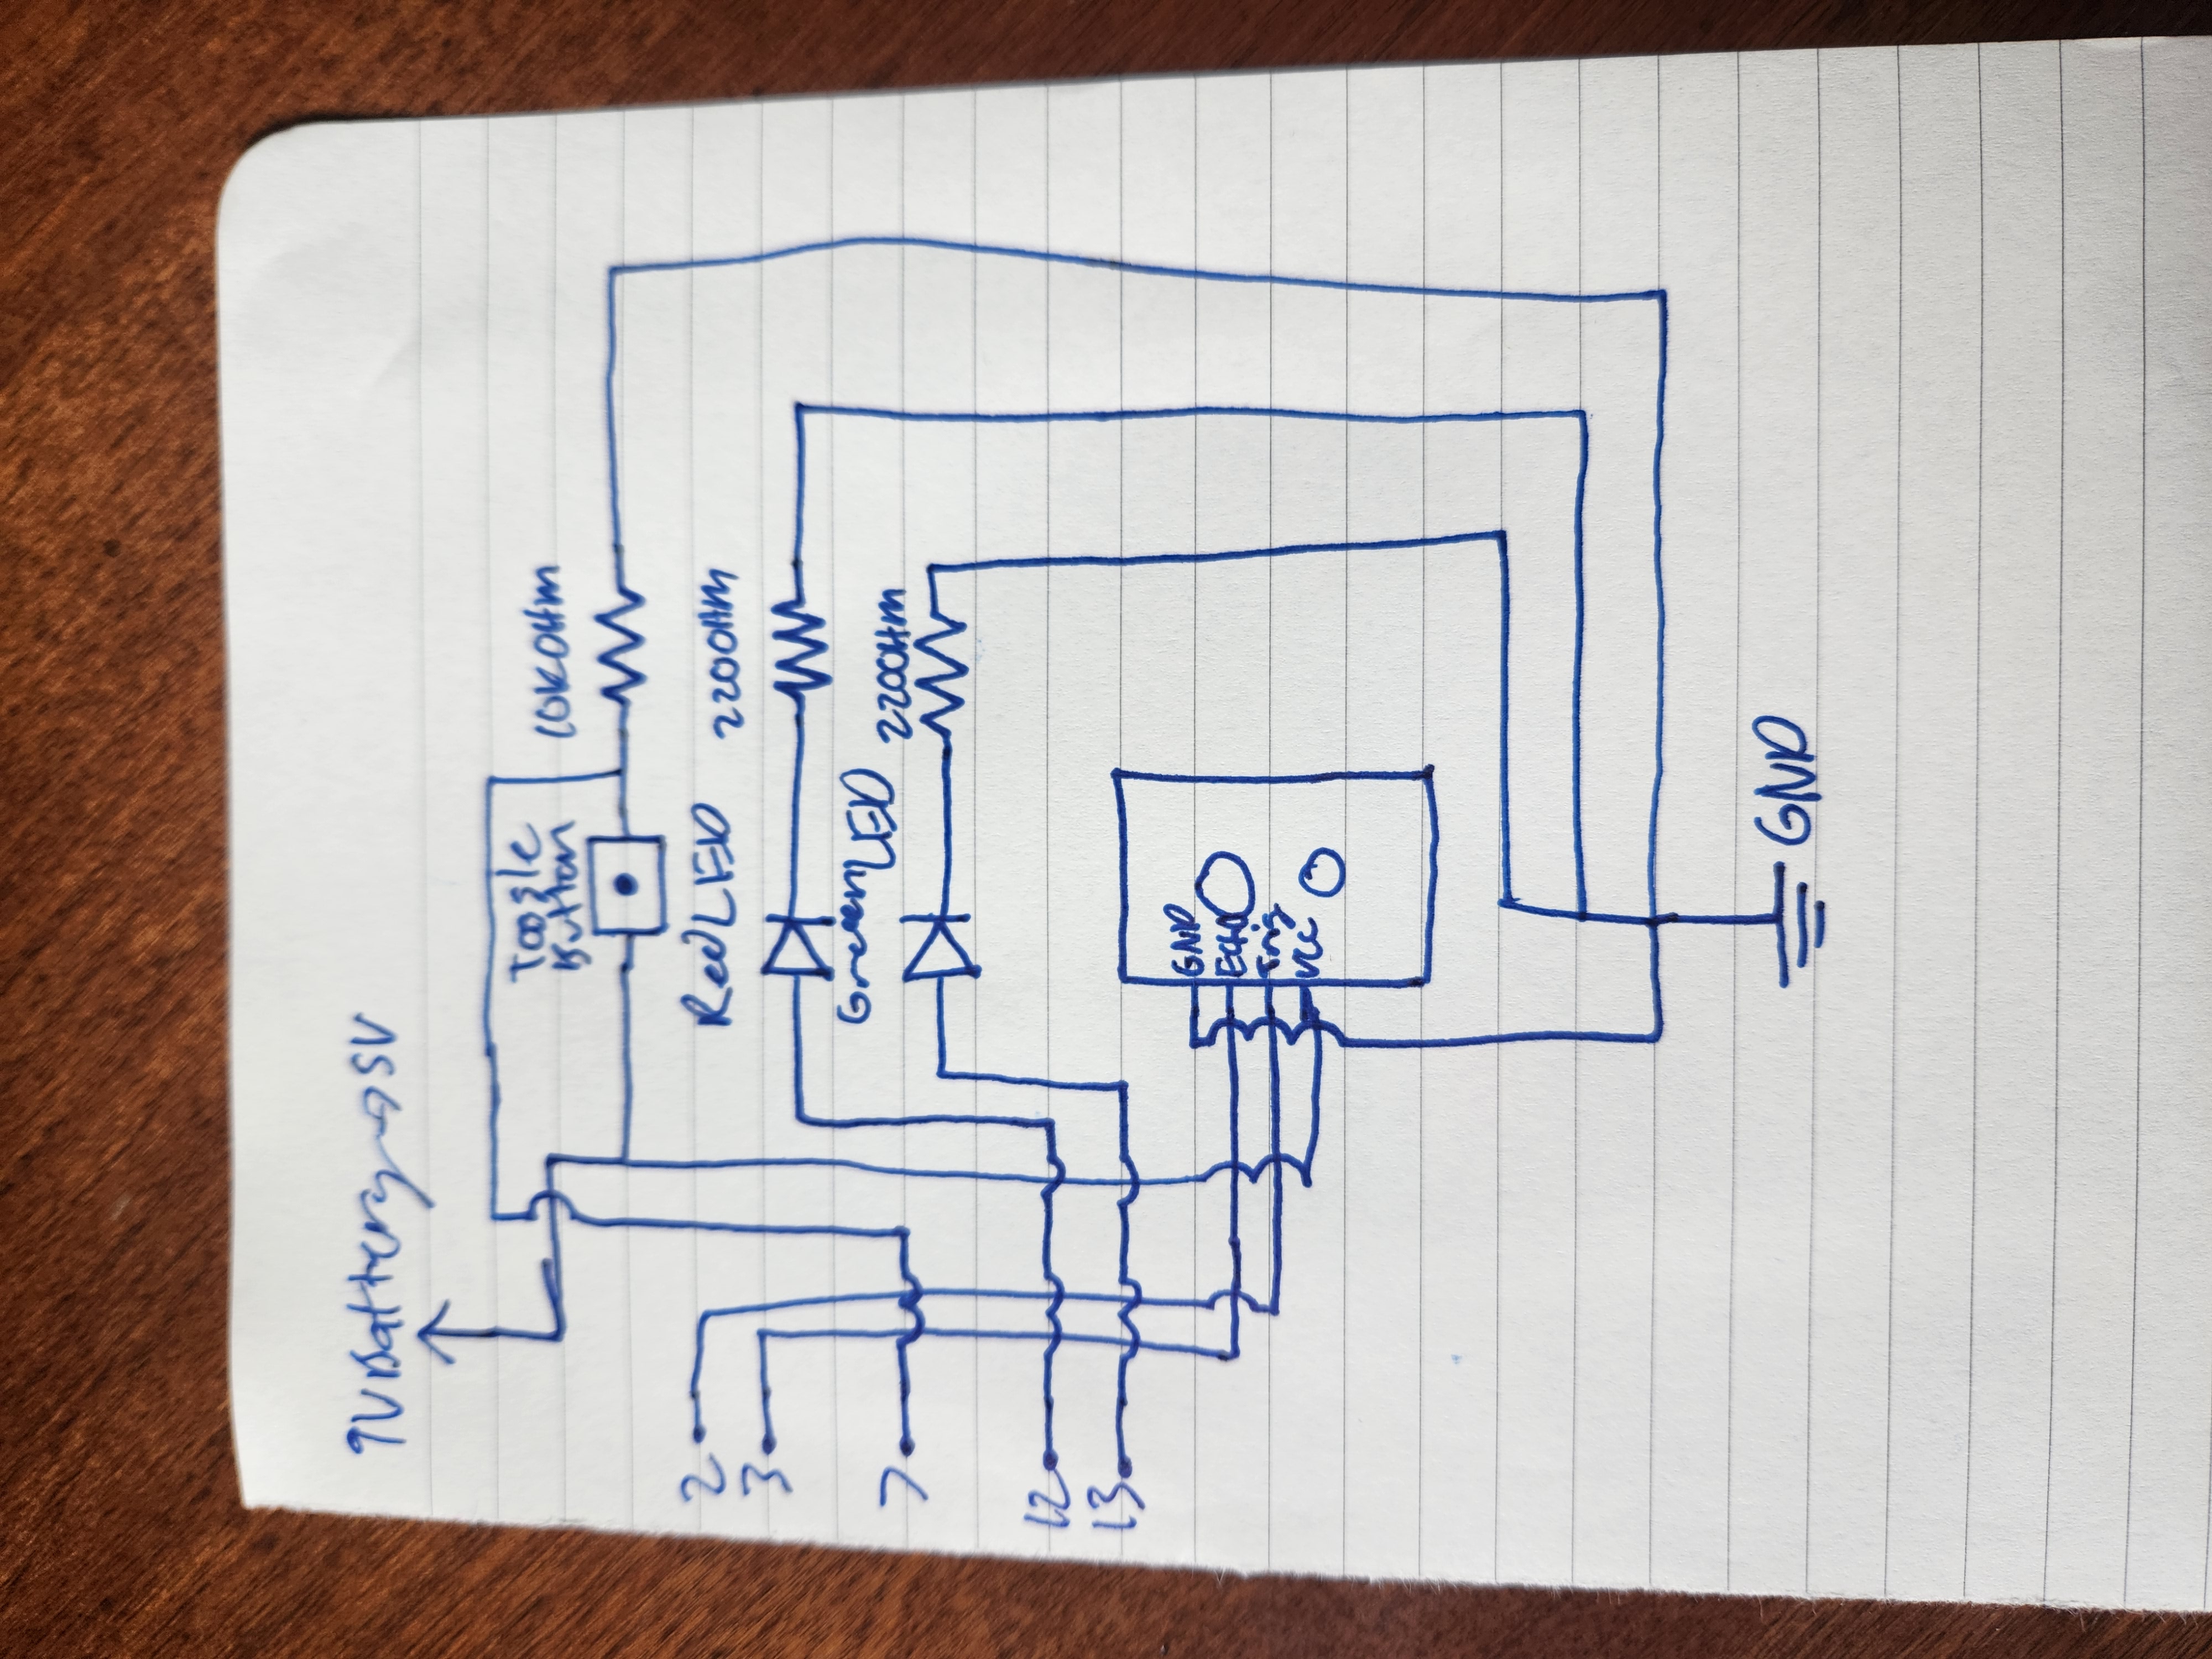 9V Battery → 5V
Toogle
Button
10KOHM
2
Red LED
220OHM
3
Green LED
7
220OHM
12
13
GND
Echo
Trig
VCC
GND